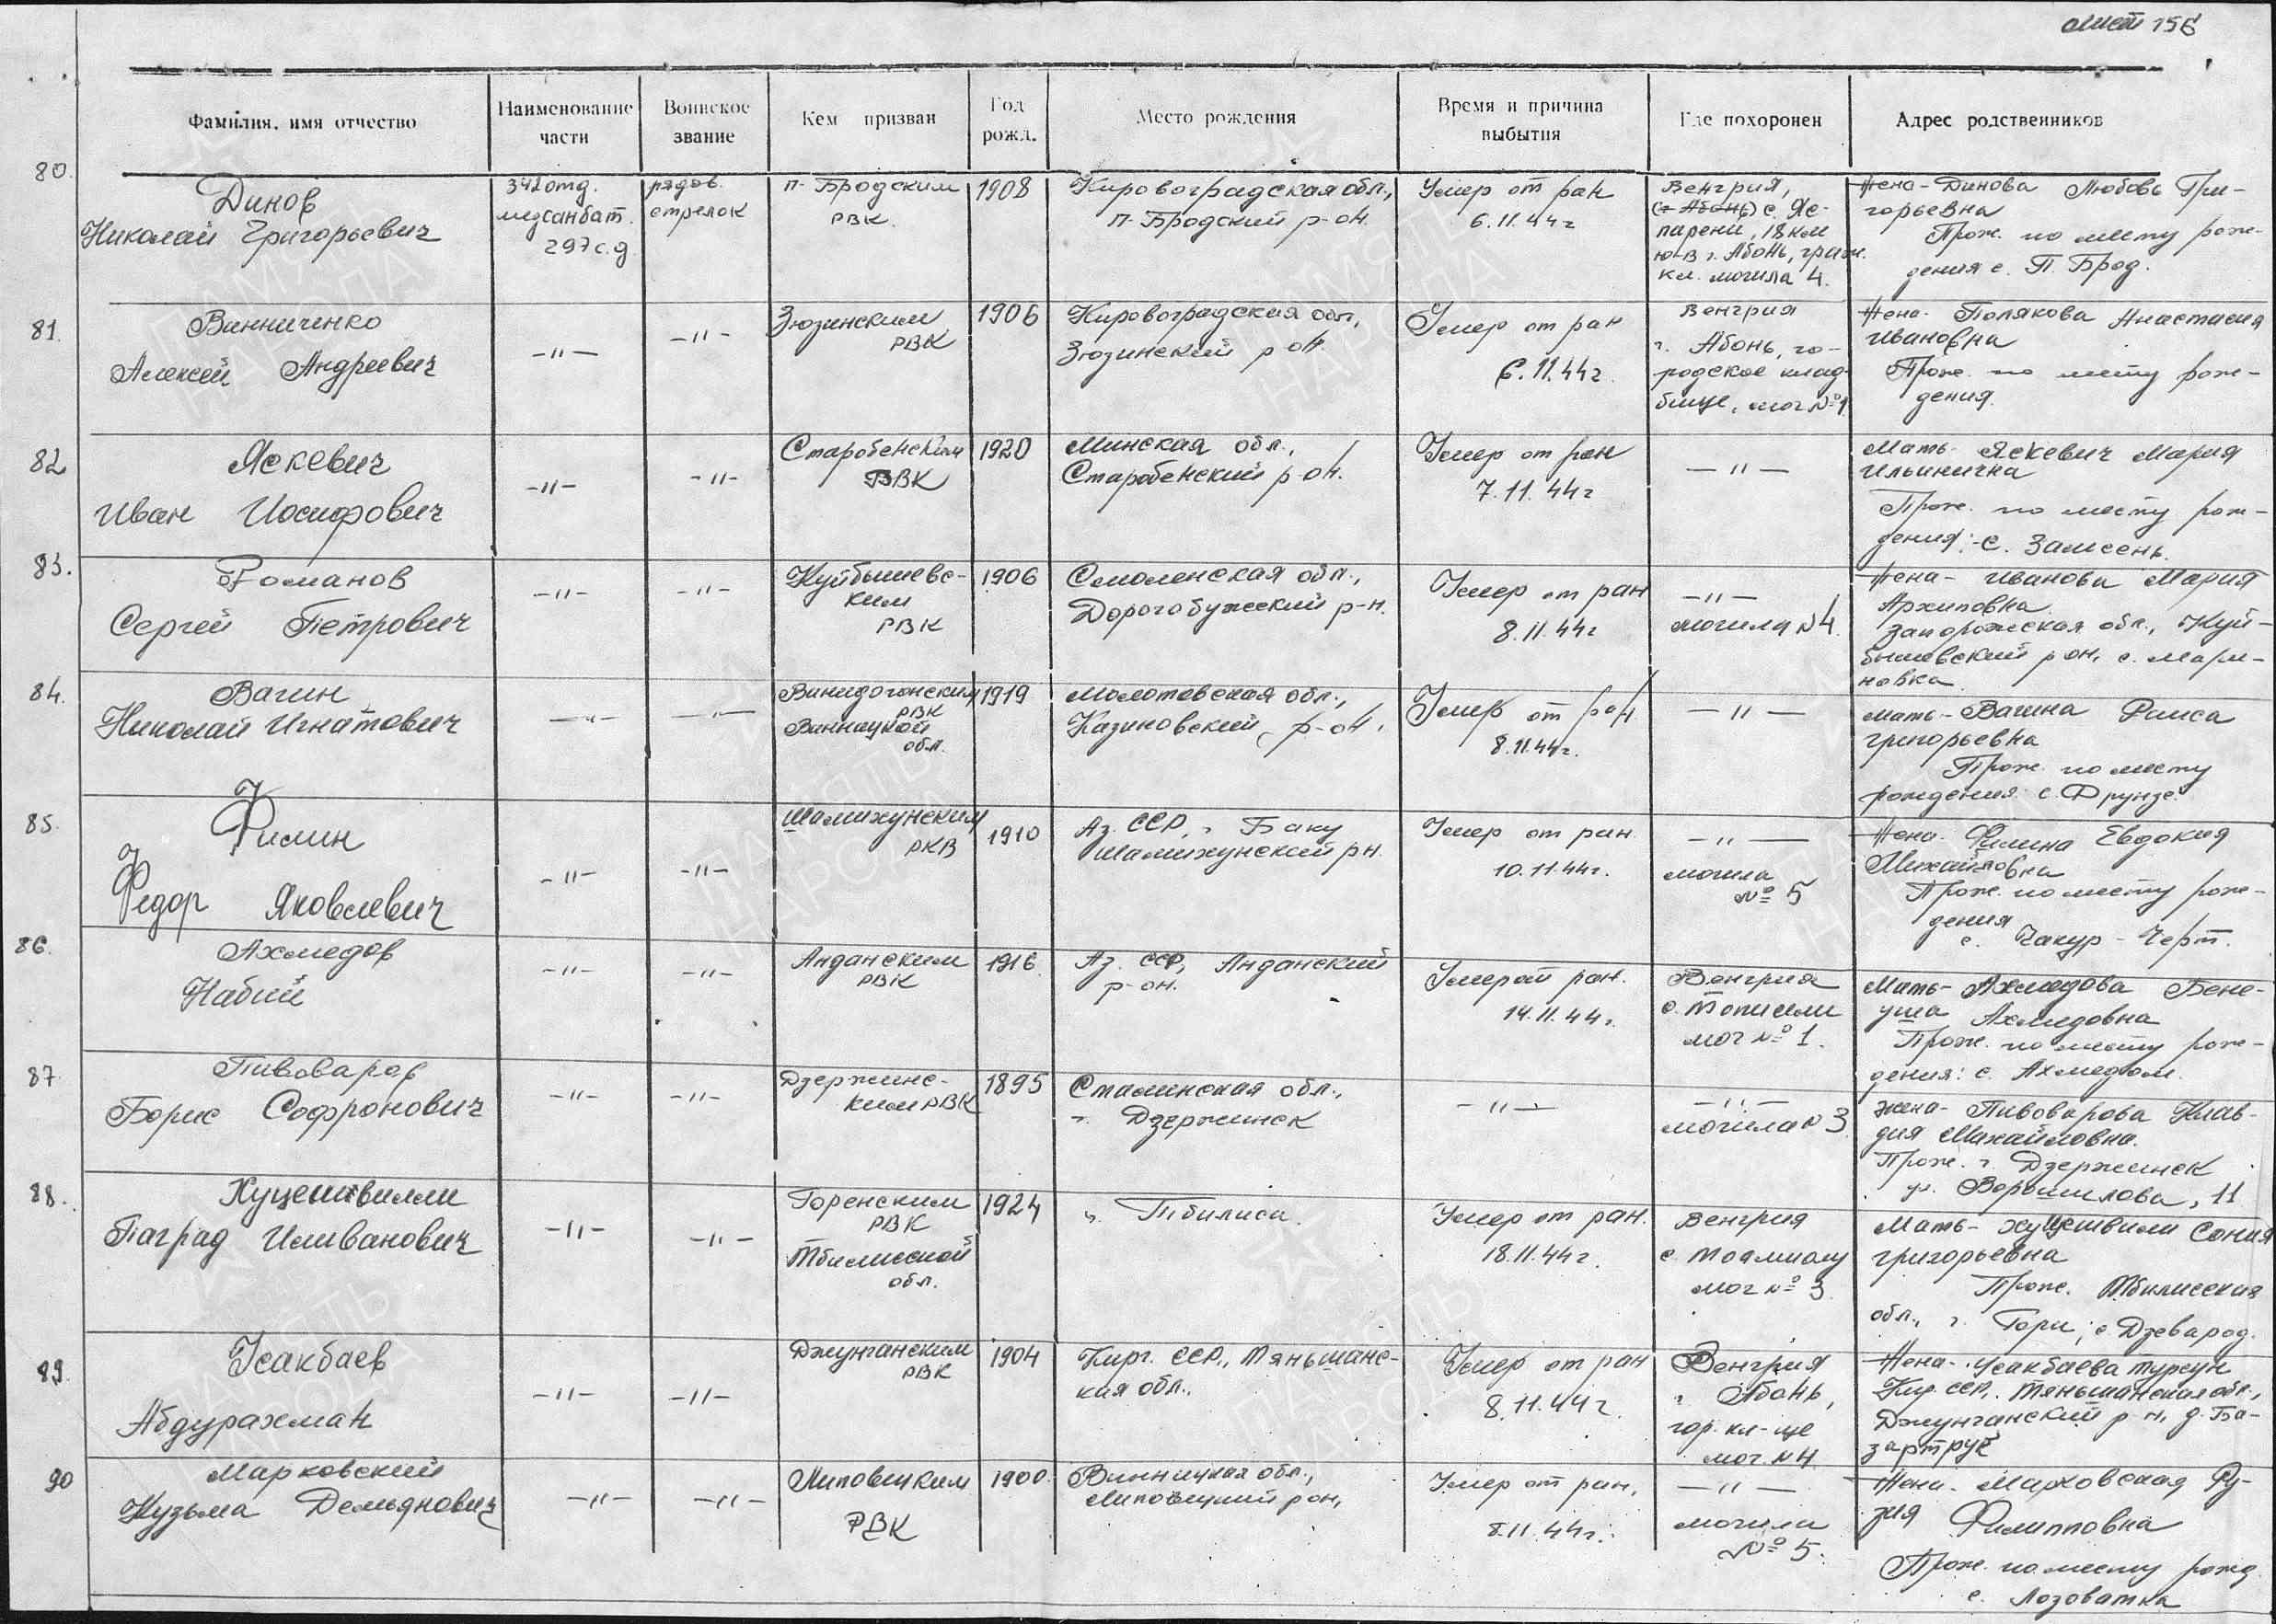 Лист 156
Фамилия, имя отчество
Наименование части
Воинское звание
Кем призван
Год рожд.
Место рождения
Время и причина выбытия
Где похоронен
Адрес родственников
80.
Динов
Николай Григорьевич
342 отд.
медсанбат.
297 с.д
рядов.
стрелок
п-Бродским
РВК.
1908
Кировоградская обл.,
п-Бродский р-он.
Умер от ран
6.11.44г
Венгрия,
(г Абонь) с. Яс-
парени, 18 км
ю-в г. Абонь, граж.
кл. могила 4.
Жена - Динова Любовь Гри-
горьевна
Прож. по месту рож-
дения с. П. Брод.
81.
Винниченко
Алексей Андреевич
-"-
-"-
Зюзинским
РВК
1906
Кировоградская обл,
Зюзинский р-он.
Умер от ран
6.11.44г.
Венгрия
г. Абонь, го-
родское клад-
бище, мог №1
Жена. Полякова Анастасия
Ивановна
Прож. по месту рож-
дения.
82
Яскевич
Иван Иосифович
-"-
-"-
Старобенским
РВК
1920
Минская обл.,
Старобенский р-он.
Умер от ран
7.11.44г
-"-
Мать - Яскевич Мария
Ильинична
Прож. по месту рож-
дения: -с. Замсень.
83.
Романов
Сергей Петрович
-"-
-"-
Куйбышевс-
ким
РВК
1906
Смоленская обл.,
Дорогобужский р-н.
Умер от ран
8.11.44г
-"-
могила №4.
Жена - Иванова Мария
Архиповна.
Запорожская обл., Куй-
бышевский р-он, с. Мари-
новка
84.
Вагин
Николай Игнатович
-"-
-"-
РВК
Винницкой
обл.
1919
Молотовская обл.,
Казиновский р-он.
Умер от ран
8.11.44г.
-"-
Мать - Вагина Раиса
Григорьевна
Прож. по месту
рождения: с. Фрунзе.
85.
Филин
Федор Яковлевич
-"-
-"-
Шамихунским
РКВ
1910
Аз. ССР, г. Баку
Шамихунский рн.
Умер от ран.
10.11.44г.
-"-
могила
№ 5
Жена. Филина Евдокия
Михайловна
Прож. по месту рож-
дения
с. Чакур - Черт.
86.
Ахмедов
Набий
-"-
-"-
Анданским
РВК
1916.
Аз. ССР, Анданский
р-он.
Умер от ран.
14.11.44г.
Венгрия
с. Тописели
мог №1.
Мать - Ахмедова Бене-
уша Ахмедовна
Прож. по месту рож-
дения: с. Ахмедом.
87
Пивоваров
Борис Софронович
-"-
-"-
Дзержинс-
ким РВК
1895
Сталинская обл.,
г. Дзержинск
-"-
-"-
могила №3
Жена - Пивоварова Клав-
дия Михайловна.
Прож. г. Дзержинск
ул. Ворошилова, 11
88.
Хуцешвилли
Паград Иливанович
-"-
-"-
Горенским
РВК
Тбилисской
обл.
1924
г. Тбилиси.
Умер от ран.
18.11.44г.
Венгрия
с. Тоалмиолу
мог №3.
Мать - Хуцешвили Сония
Григорьевна
Прож. Тбилисская
обл., г. Гори, с Дзеварод.
89.
Усакбаев
Абдурахман
-"-
-"-
Джунганским
РВК
1904
Кирг. ССР., Тяньшанс-
кая обл..
Умер от ран
8.11.44г.
Венгрия
г Абонь,
гор. кл-ще
мог. №4
Жена - Усакбаева Турсун
Кир. ССР,. Тяньшанская обл.,
Джунганский р-н, д. Ба-
зартруе
90
Марковский
Кузьма Демьянович
-"-
-"-
Липовецким
РВК
1900.
Винницкая обл.,
Липовецкий рон,
Умер от ран,
8.11.44г.
-"-
могила
№ 5.
Жена. Марковская Фу-
зия Филипповна
Прож. по месту рожд
с. Лозоватка